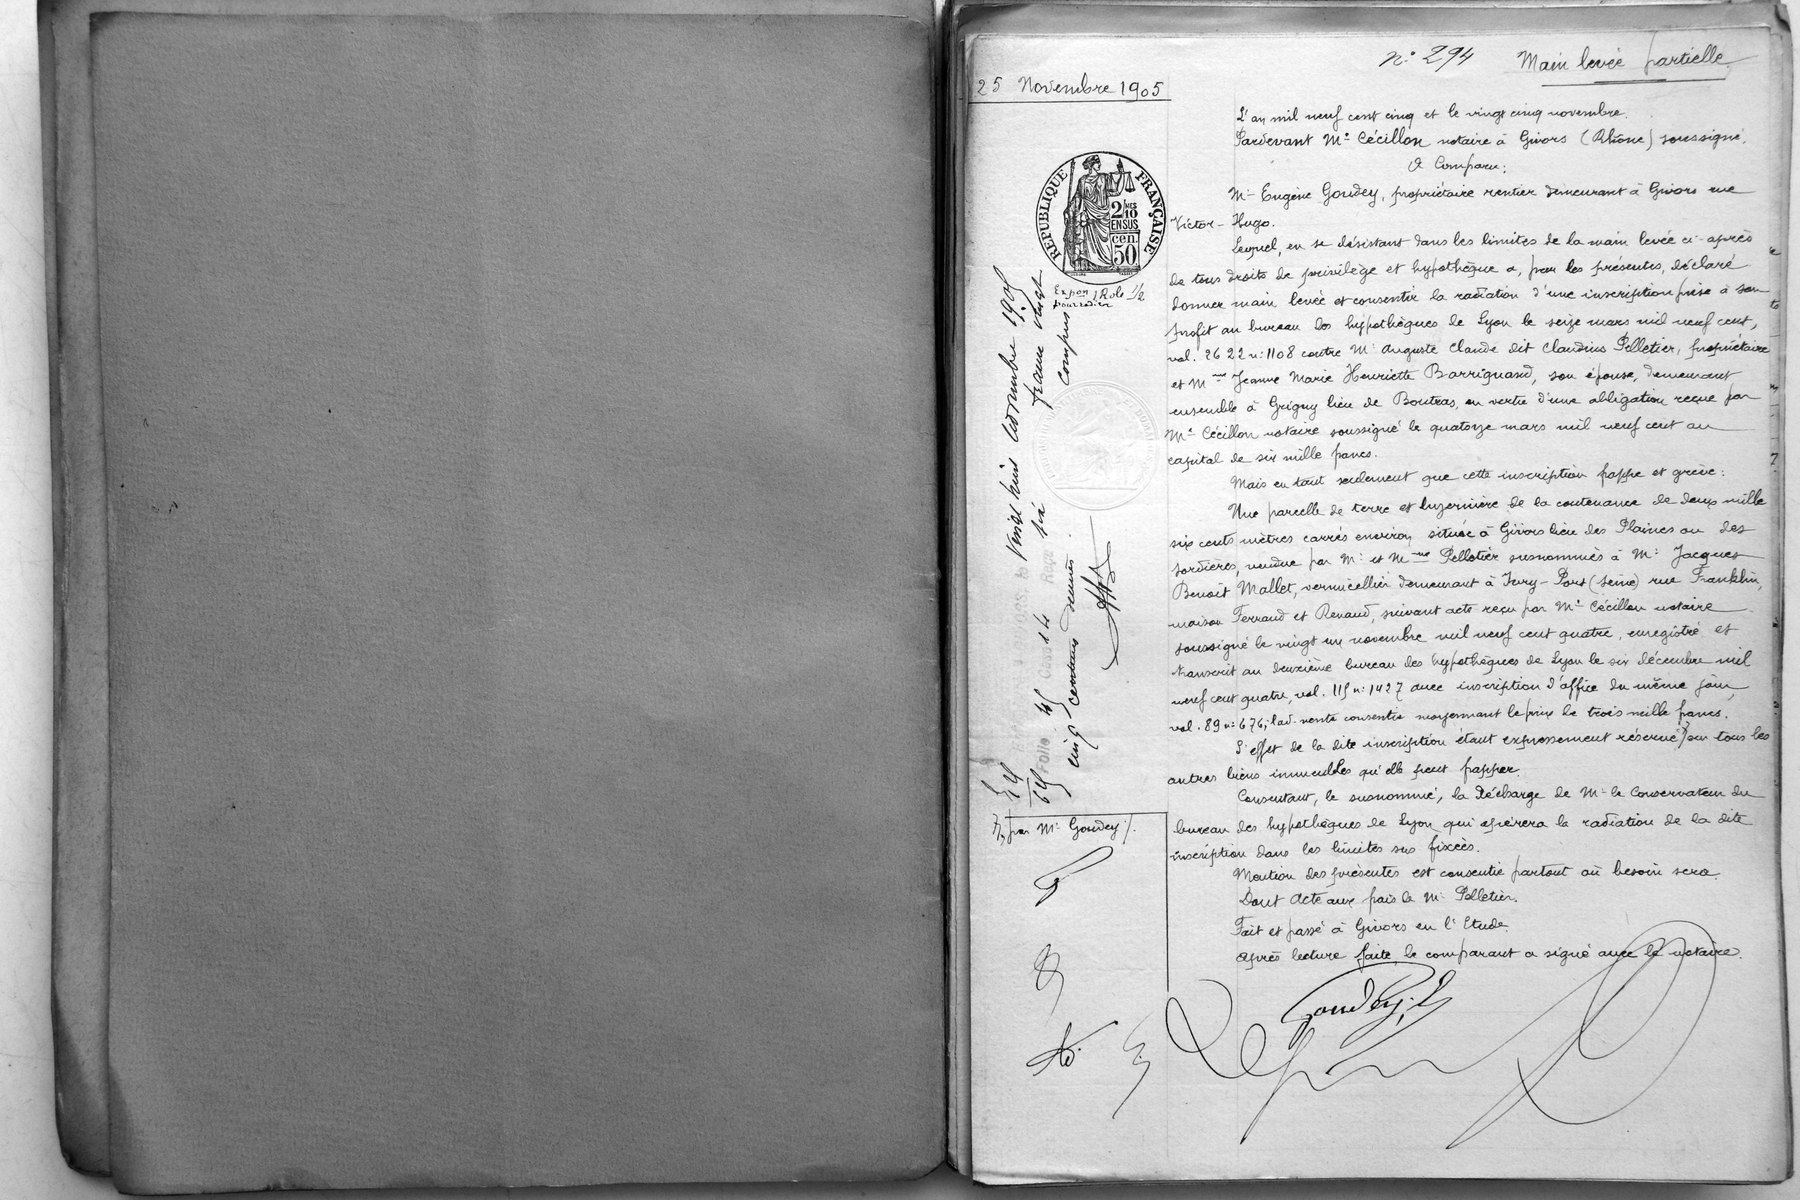 N° 294 Main levée partielle
25 Novembre 1905
L'an mil neuf cent cinq et le vingt cinq novembre.
Pardevant Me Cécillon notaire à Givors (Rhône) soussigné.
A Comparu:
Mr Eugène Goudey, propriétaire rentier demeurant à Givors rue
Victor-Hugo.
Lequel, en se désistant dans les limites de la main levée ci-après
de tous droits de privilège et hypothèque a, par les présentes, déclaré
donner main levée et consentir la radiation d'une inscription prise à son
profit au bureau des hypothèques de Lyon le seize mars mil neuf cent,
vol. 2622 n° 1108 contre Mr Auguste Claude dit Claudius Pelletier, propriétaire
et Mme Jeanne Marie Henriette Barriguand, son épouse, demeurant
ensemble à Grigny lieu de Boutras, en vertu d'une obligation reçue par
Me Cécillon notaire soussigné le quatorze mars mil neuf cent au
capital de six mille francs.
Mais en tant seulement que cette inscription frappe et grève:
Une parcelle de terre et luzernière de la contenance de deux mille
six cents mètres carrés environ, située à Givors lieu des Plaines ou des
vendue par Mr et Mme Pelletier susnommés à Mr Jacques
Benoit Mallet, vermicellier demeurant à Ivry-Port (Seine) rue Franklin,
maison Ferrand et Renaud, suivant acte reçu par Me Cécillon notaire
soussigné le vingt un novembre mil neuf cent quatre, enregistré et
transcrit au deuxième bureau des hypothèques de Lyon le six décembre mil
neuf cent quatre, vol. 115 n° 1427 avec inscription d'office du même jour,
vol. 89 n° 676, lad. vente consentie moyennant le prix de trois mille francs.
L'effet de la dite inscription étant expressement réservé sur tous les
autres biens immeubles qu'elle peut frapper.
Consentant, le susnommé, la décharge de Mr le Conservateur du
bureau des hypothèques de Lyon qui opérera la radiation de la dite
inscription dans les limites sus fixées.
Mention des présentes est consentie partout où besoin sera.
Dont Acte aux frais de Mr Pelletier.
Fait et passé à Givors en l'Etude.
Après lecture faite le comparant a signé avec le notaire.
Goudey
REPUBLIQUE FRANÇAISE
2/10mes
EN SUS
50 cen.
Expon 1 Role 1/2
vingt huit novembre 1905
Folio 45 Case 14 Reçu six francs vingt
cinq centimes décimes compris
par Mr Goudey